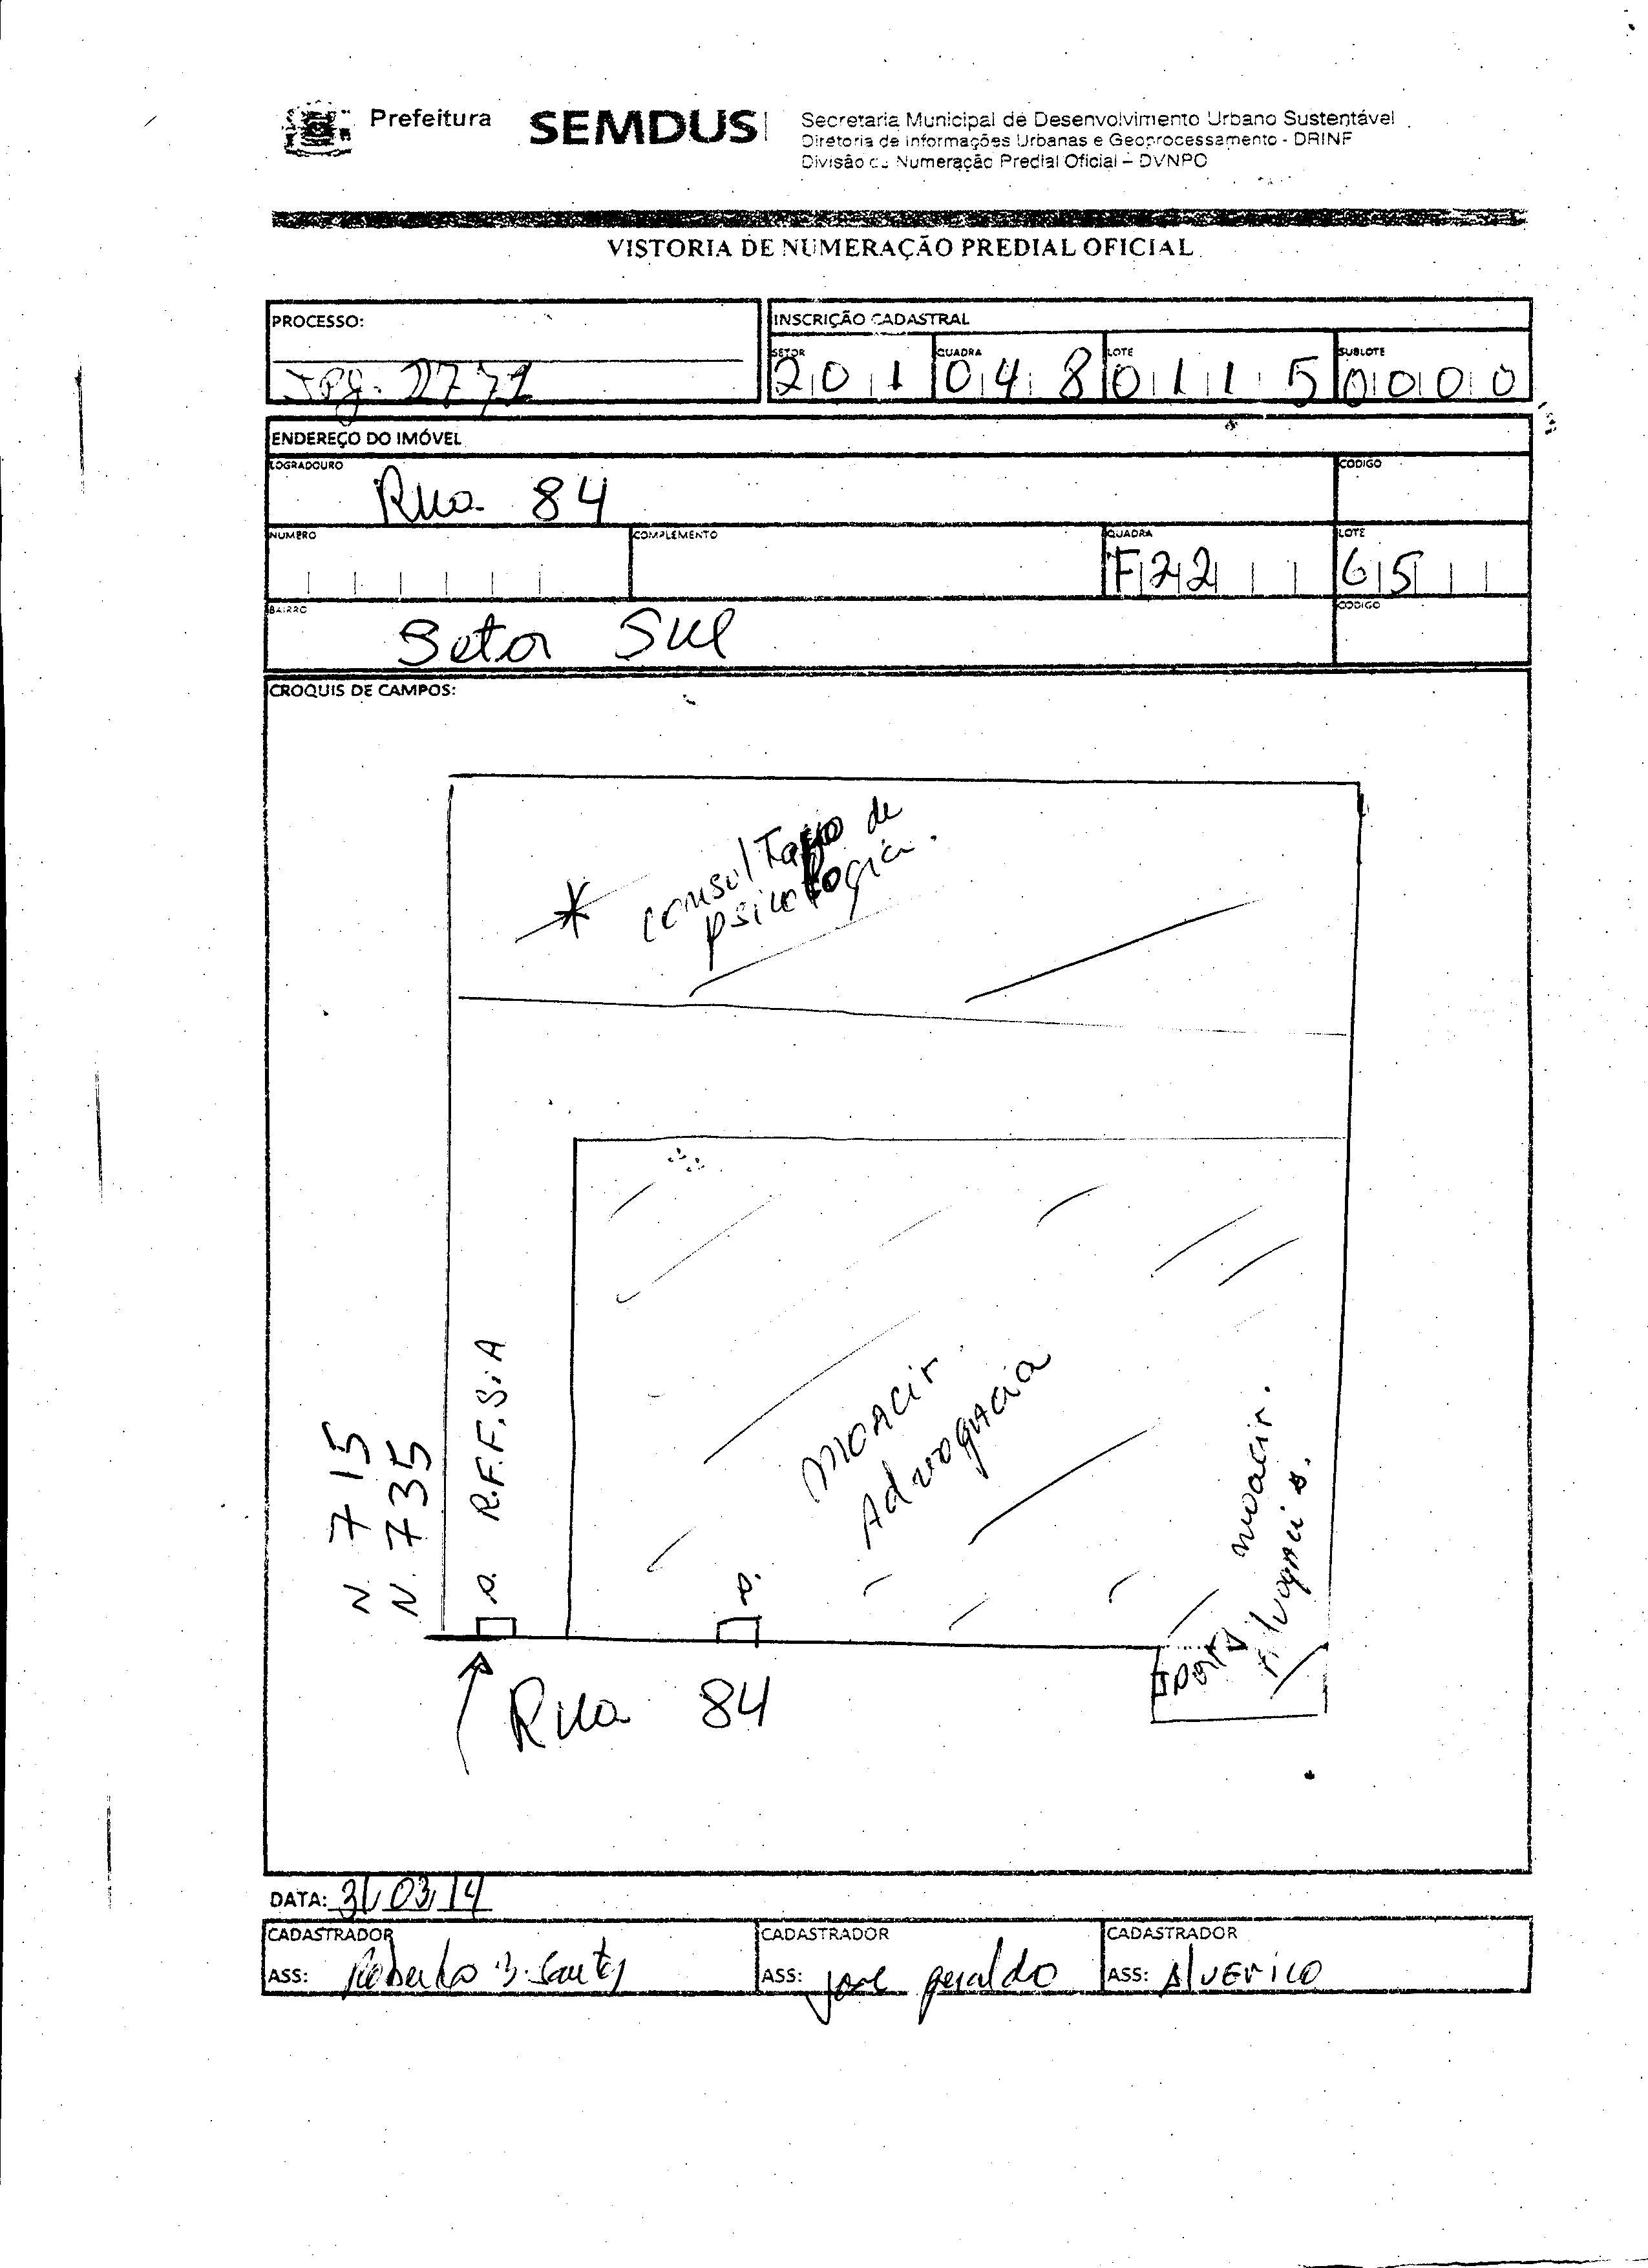 Prefeitura
SEMDUS
Secretaria Municipal de Desenvolvimento Urbano Sustentável
Diretoria de Informações Urbanas e Geoprocessamento - DRINF
Divisão de Numeração Predial Oficial – DVNPO
VISTORIA DE NUMERAÇÃO PREDIAL OFICIAL
PROCESSO:
Jpg. 2771
INSCRIÇÃO CADASTRAL
SETOR QUADRA LOTE SUBLOTE
201 048 0115 0000
ENDEREÇO DO IMÓVEL
LOGRADOURO CODIGO
Rua 84
NUMERO COMPLEMENTO QUADRA LOTE
F22 65
BAIRRO CODIGO
Setor Sul
CROQUIS DE CAMPOS:
* consultorio de
psicologia.
N. 715
N. 735
P. R.F.F.S.A
P.
MOACir
AdvogAcia
Porta
moacir.
Rua 84
DATA: 31/03/14
CADASTRADOR CADASTRADOR CADASTRADOR
ASS: Roberto B. Santos ASS: José geraldo ASS: AlvErico